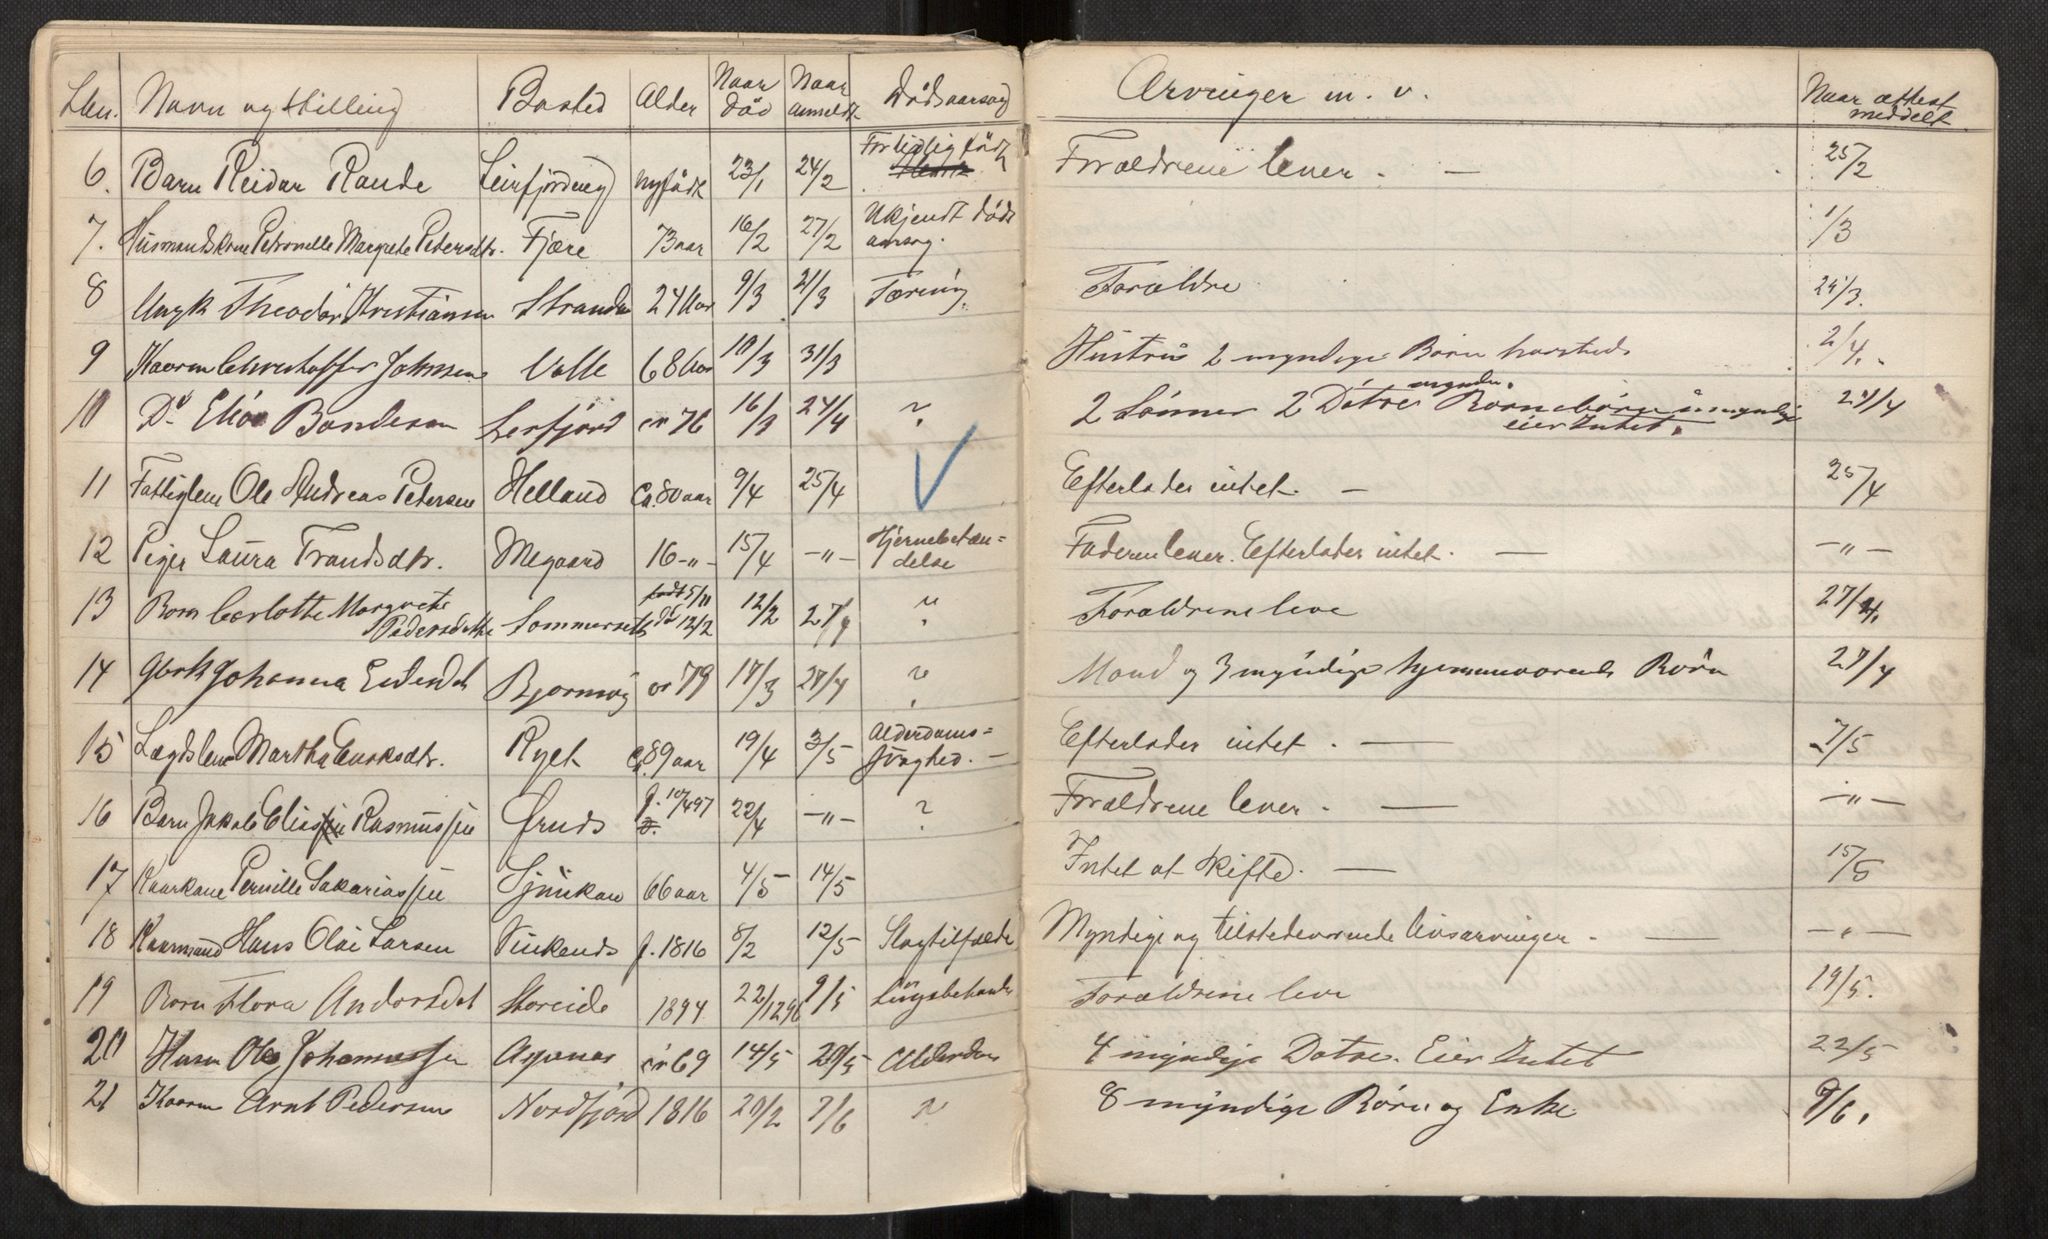 Lbn. Navn og Stilling Bosted Alder Naar død Naar anmeldt Dødsaarsag Arvinger m. v. Naar attest meddelt.
6. Barn Reidar Rande Leirfjord nyfødt 23/1 24/2 For tidlig født Forældrene lever. — 25/2
7. Husmandskone Petronelle Margrete Pedersdtr. Fjære 73 aar 16/2 27/2 Ukjendt dødsaarsag. 1/3
8 Ungk Theodor Kristiansen Stranden 24 Aar 9/3 21/3 Tæring. Forældre 24/3.
9 Kaarm Christoffer Johnsen Valle 68 Aar 10/3 31/3 Hustru 2 myndige Børn 2/4.
10 Do Elias Bendersen Leifjord ca 76 16/3 24/4 ? 2 Sønner 2 Døtre myndi. Børnebørn umyndige eier Intet. 24/4
11 Fattiglem Ole Andreas Petersen Helland Ca. 80 aar 9/4 25/4 Efterlader intet. — 25/4
12 Pige Laura Trandsdtr. Megaard 16 -"- 15/4 -"- Hjernebetændelse Faderen lever. Efterlader intet. — -"-
13 Barn Carlotte Margrete Pedersdatter Sommerseth født 5/11 dd 12/2 12/2 27/4 ? Forældrene leve 27/4.
14 Johanna Bjørnsvig ca 79 17/3 27/4 ? Mand og 3 myndige hjemmeværende Børn 27/4
15 Lægdslem Martha Eriksdtr. Ryet Ca. 89 aar 19/4 3/5 Alderdoms=svaghed. — Efterlader intet. — 7/5
16 Barn Jakob Elias Rasmussen Ørnds f. 10/4 97 22/4 -"- ? Forældrene lever. — -"-
17 Kaarkone Pernille Sakariassen Sjøn 66 aar 4/5 14/5 Intet at skifte. — 15/5
18 Kaarmand Hans Olai Larsen f. 1816 8/2 12/5 Slagtilfælde Myndige og tilstedeværende livsarvinger. — -"-
19 Barn Flora Andersdat Storeide 1894 22/12 96 9/5 Forældrene leve 19/5.
20 Husm Ole Johannessen Agnenes ca 69 14/5 20/5 Alderdom 4 myndige Døtre. Eier Intet 22/5
21 Kaarm Arnt Pedersen Nordfjord 1816 20/2 7/6 " 8 myndige Børn og Enke. 9/6.